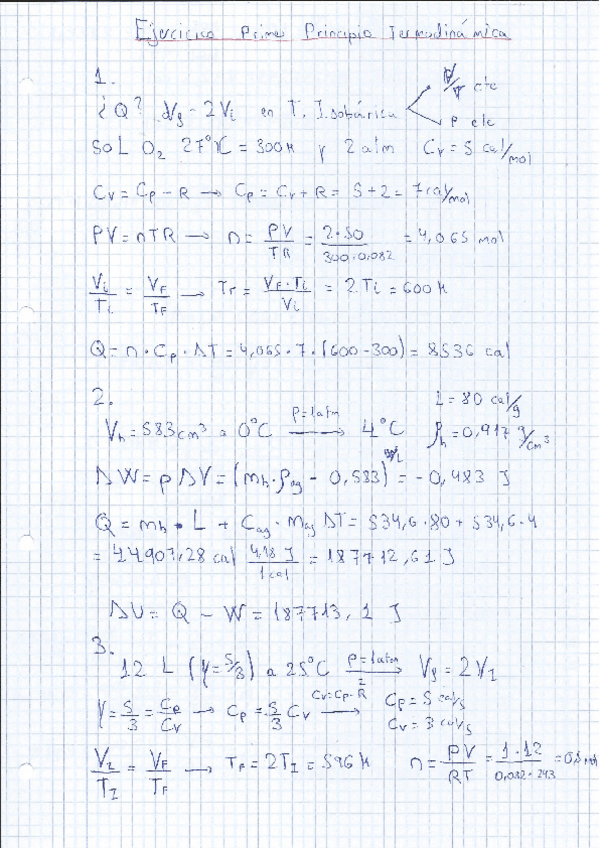 Ejercicios Primer Principio Termodinámica
1.
¿Q? Vf = 2Vi en T. Isobárica
V/T cte
P cte
50 L O2 27ºC = 300K y 2 atm Cv = 5 cal/mol
Cv = Cp - R → Cp = Cv + R = 5 + 2 = 7 cal/mol
PV = nTR → n = PV/TR = 2·50/300·0,082 = 4,065 mol
Vi/Ti = VF/TF → TF = VF·Ti/Vi = 2Ti = 600K
Q = n · Cp · ΔT = 4,065 · 7 · (600 - 300) = 8536 cal
2.
Vh = 583 cm³ a 0ºC P=1atm → 4ºC
L = 80 cal/g
ρh = 0,917 g/cm³
ΔW = p ΔV = (mh · ρag - 0,583) = -0,483 J
Q = mh · L + Cag · mag ΔT = 534,6 · 80 + 534,6 · 4
= 44907,28 cal 4,18 J/1 cal = 187712,61 J
ΔU = Q - W = 187713,1 J
3.
12 L (γ = 5/3) a 25ºC p=1atm → Vf = 2VI
γ = 5/3 = Cp/Cv → Cp = 5/3 Cv Cv=Cp-R → Cp = 5 cal/s
Cv = 3 cal/s
VI/TI = VF/TF → TF = 2TI = 596 K n = PV/RT = 1·12/0,082·293